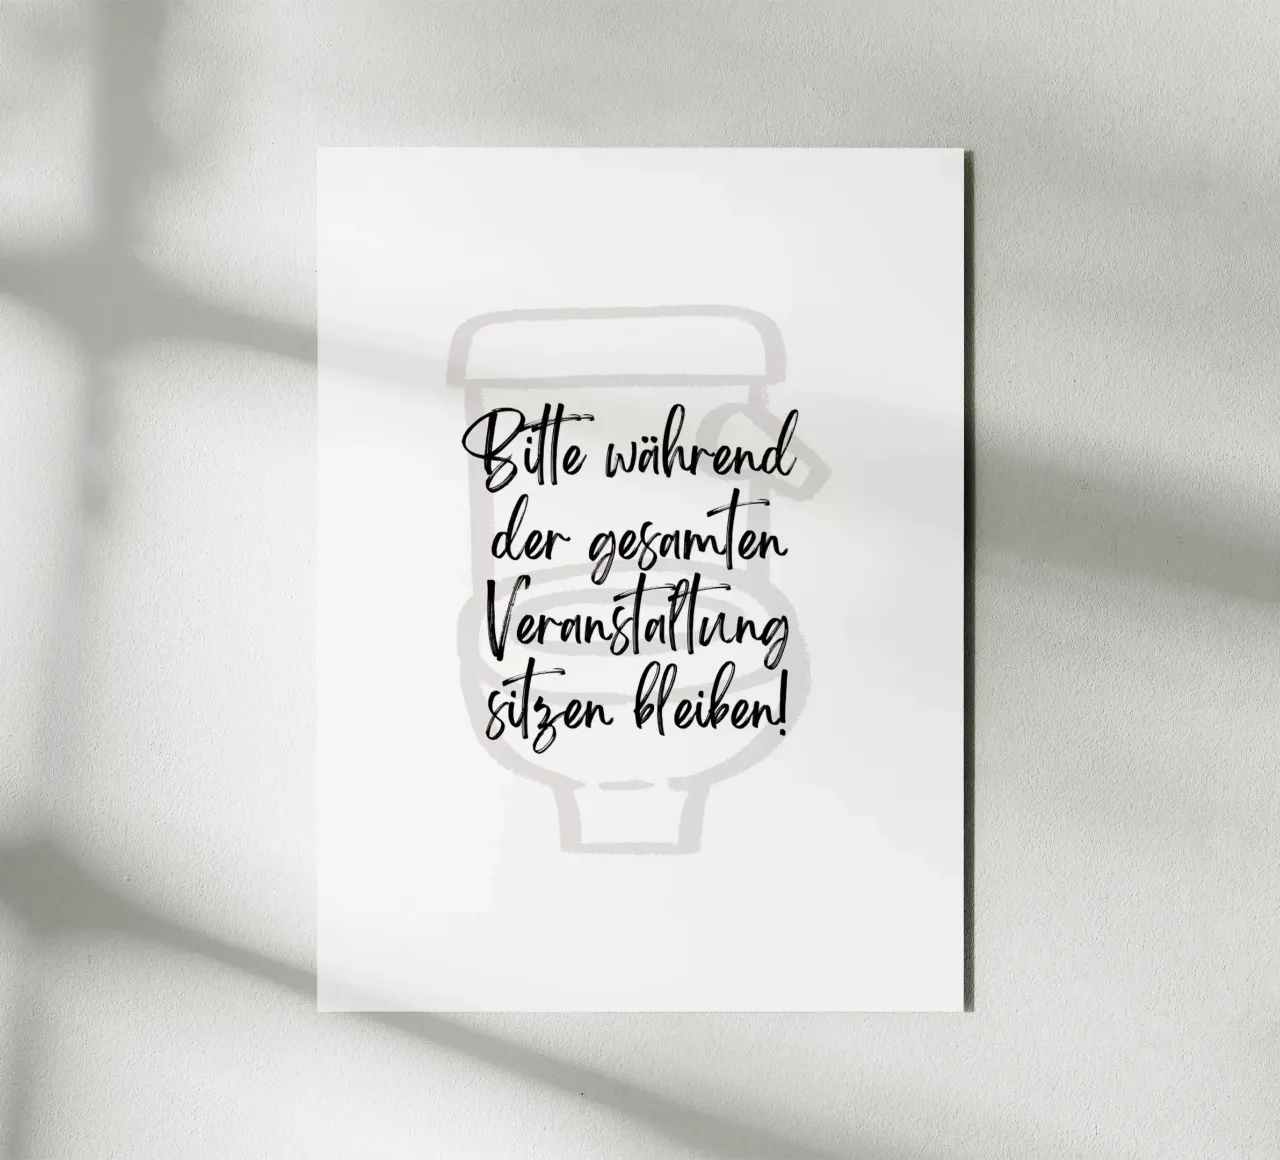 Bitte während
der gesamten
Veranstaltung
sitzen bleiben!